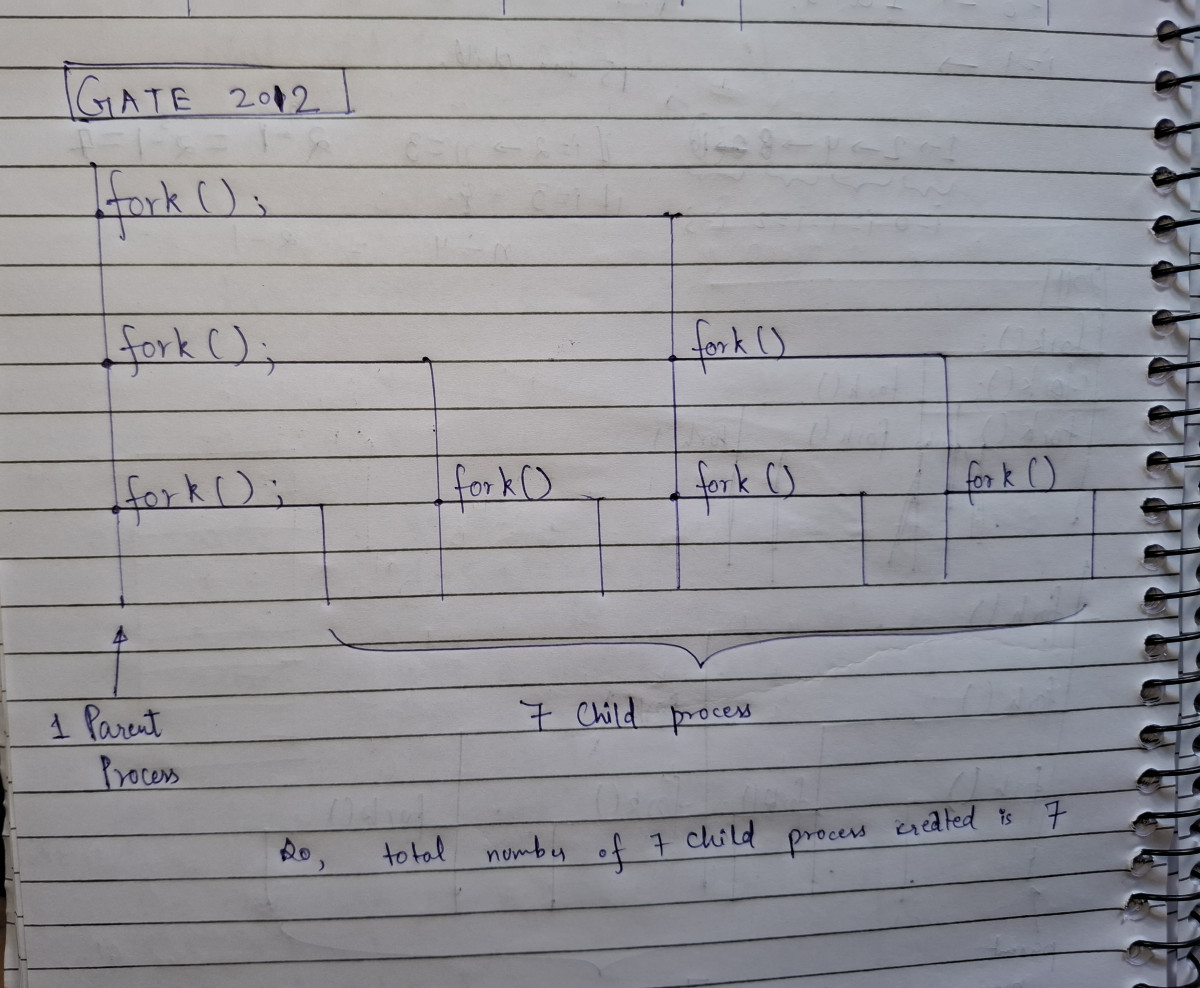 GATE 2012
fork();
fork(); fork()
fork(); fork() fork() fork()
1 Parent
Process
7 Child process
So, total number of 7 child process created is 7